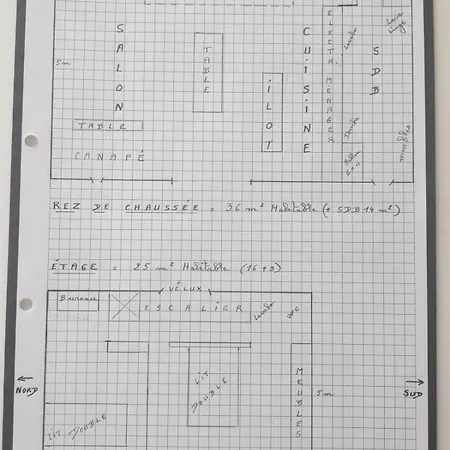 SALON
TABLE
CUISINE
ELECTR. MÉNAGER
Lavabo
Lave Linge
SDB
5m
ILOT
TABLE
CANAPÉ
Douche
meubles
REZ DE CHAUSSÉE = 36 m² Habitable (+ SDB 14 m²)
ÉTAGE = 25 m² Habitable (16+9)
VÉLUX
Bureau
ESCALIER
Lavabo
WC
LIT DOUBLE
MEUBLES
5m
NORD
SUD
LIT DOUBLE